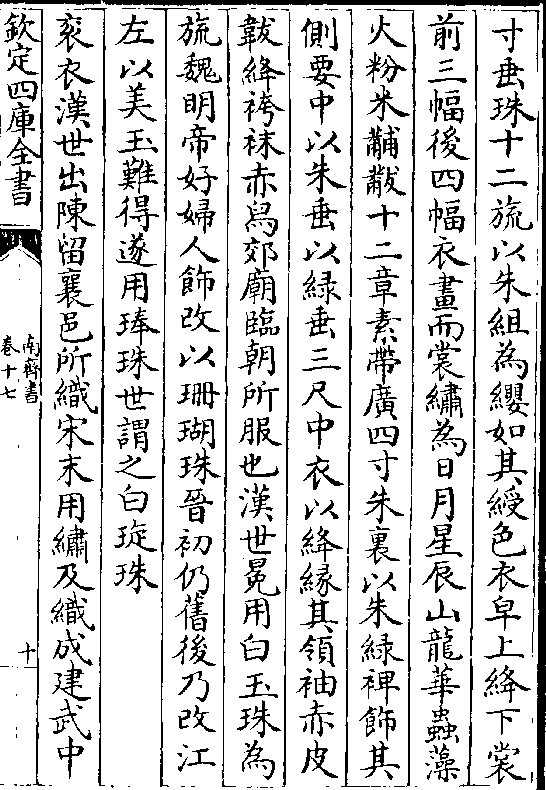 寸垂珠十二旒以朱組為纓如其綬色衣皁上絳下裳
前三幅後四幅衣畫而裳繡為日月星辰山龍華蟲藻
火粉米黼黻十二章素帶廣四寸朱裏以朱緑裨飾其
側要中以朱垂以緑垂三尺中衣以絳緣其領袖赤皮
韍絳袴袜赤舄郊廟臨朝所服也漢世冕用白玉珠為
旒魏明帝好婦人飾改以珊瑚珠晉初仍舊後乃改江
左以美玉難得遂用琫珠世謂之白琁珠
衮衣漢世出陳留襄邑所織宋末用繡及織成建武中
欽定四庫全書
南齊書
卷十七
十